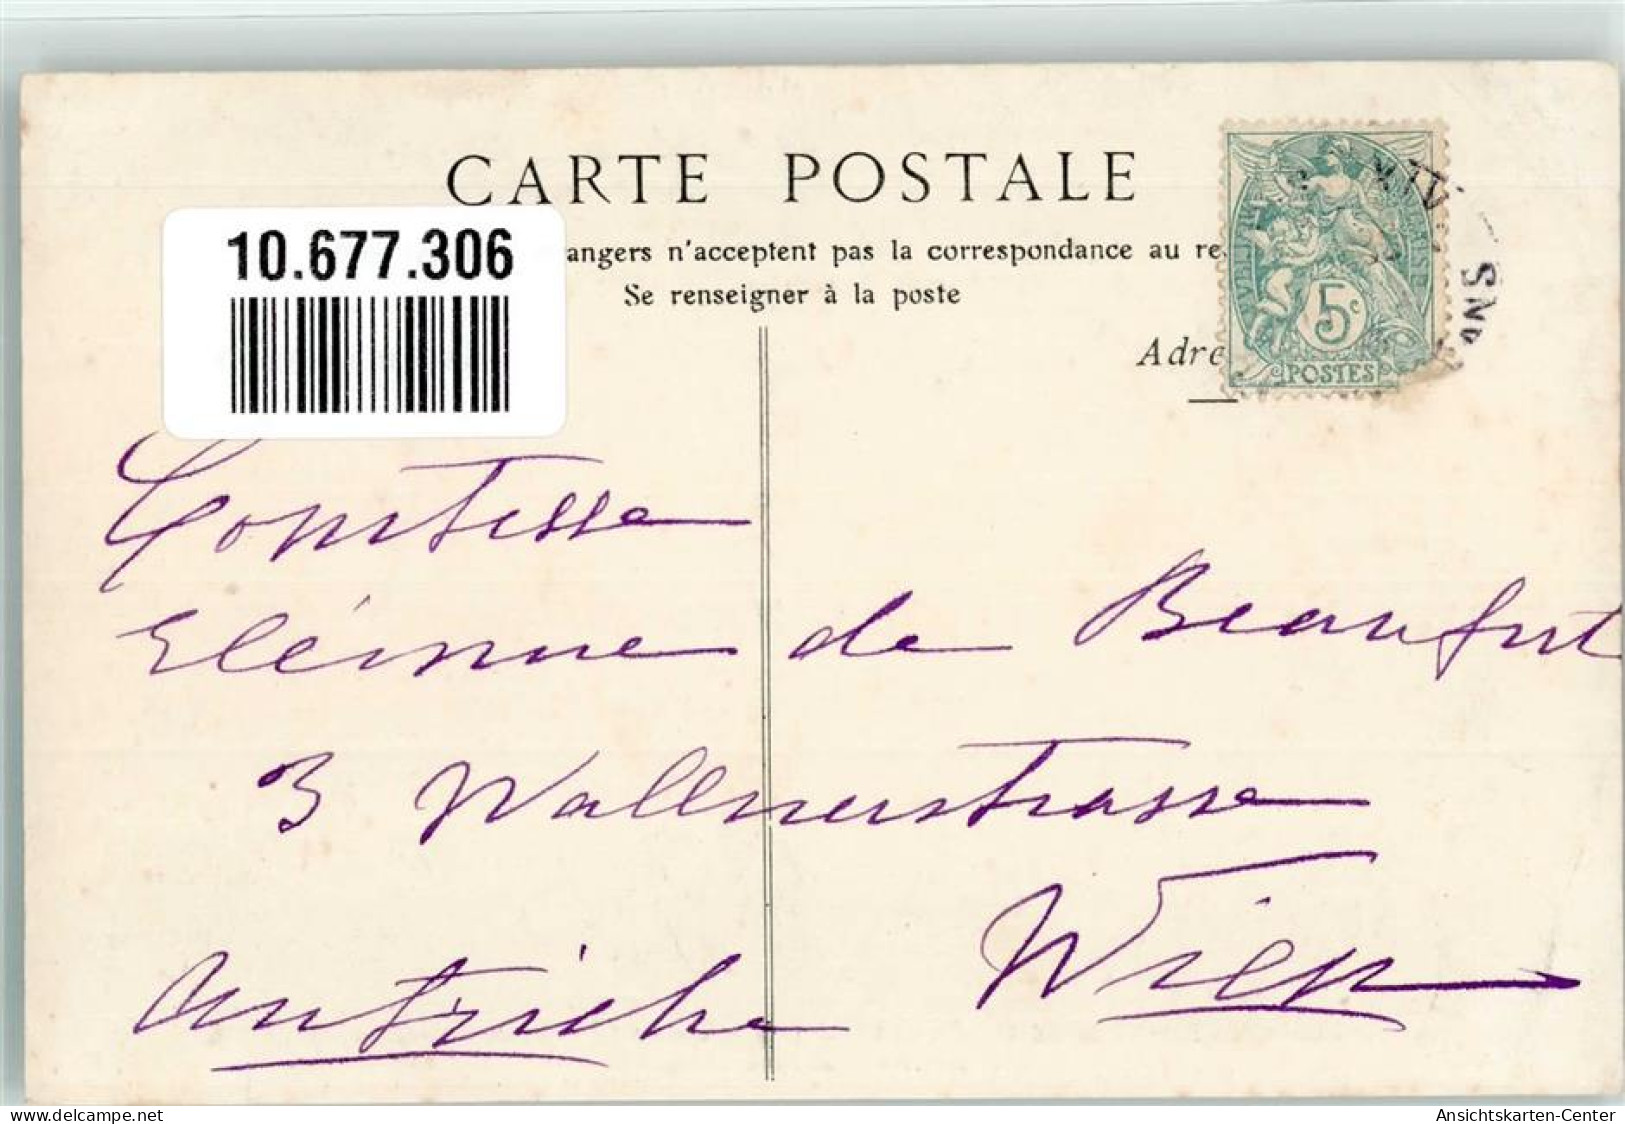 CARTE POSTALE
10.677.306
angers n'acceptent pas la correspondance au re
Se renseigner à la poste
Adre
5c
POSTES
Comtesse
Eléonore de Beaufort
3 Wallnerstrasse
Wien
Autriche
delcampe.net
Ansichtskarten-Center